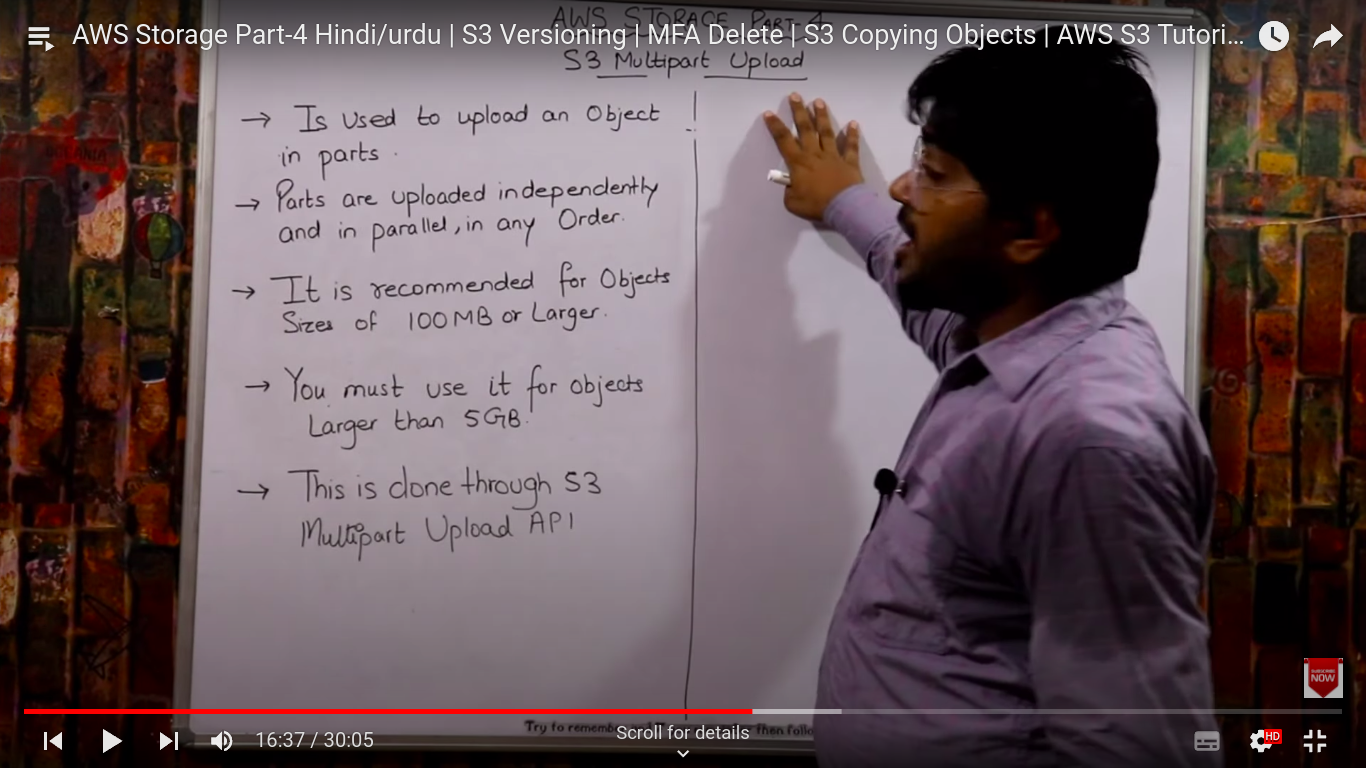 AWS Storage Part-4 Hindi/urdu | S3 Versioning | MFA Delete | S3 Copying Objects | AWS S3 Tutori...
AWS STORAGE PART-4
S3 Multipart Upload
→ Is used to upload an Object
in parts.
→ Parts are uploaded independently
and in parallel, in any Order.
→ It is recommended for Objects
Sizes of 100MB or Larger.
→ You must use it for objects
Larger than 5GB.
→ This is done through S3
Multipart Upload API
OCEANIA
SUBSCRIBE
NOW
Try to remember
Then follo
16:37 / 30:05
Scroll for details
HD